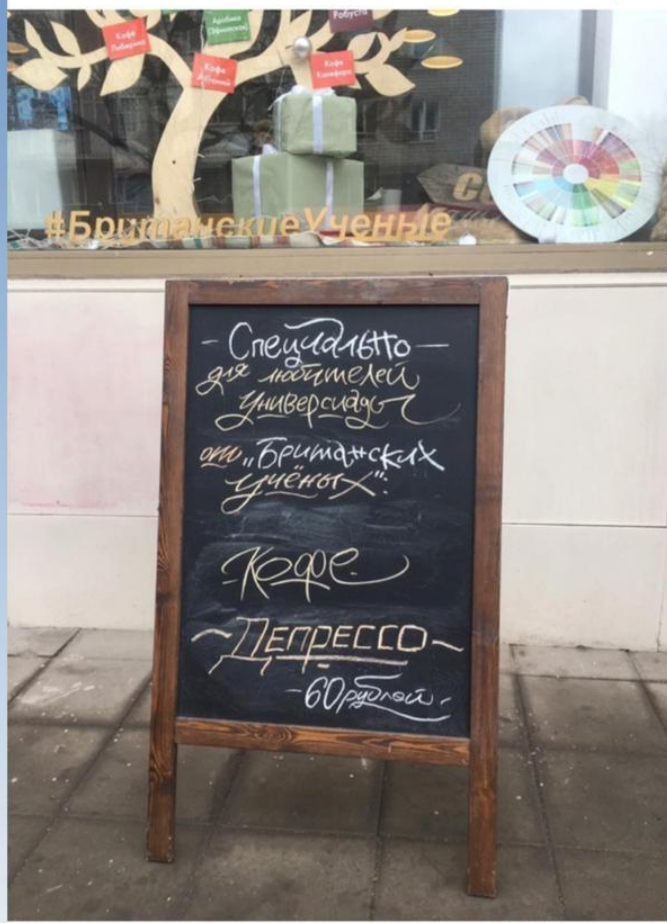 Кофе
Либерика
Арабика
(Эфиопская)
Робуста
Кофе
Кофе
Канефора
CO
#БританскиеУченые
- Специально -
для любителей
универсиады
от „Британских
учёных":
Кофе
~ Депрессо ~
- 60 рублей -